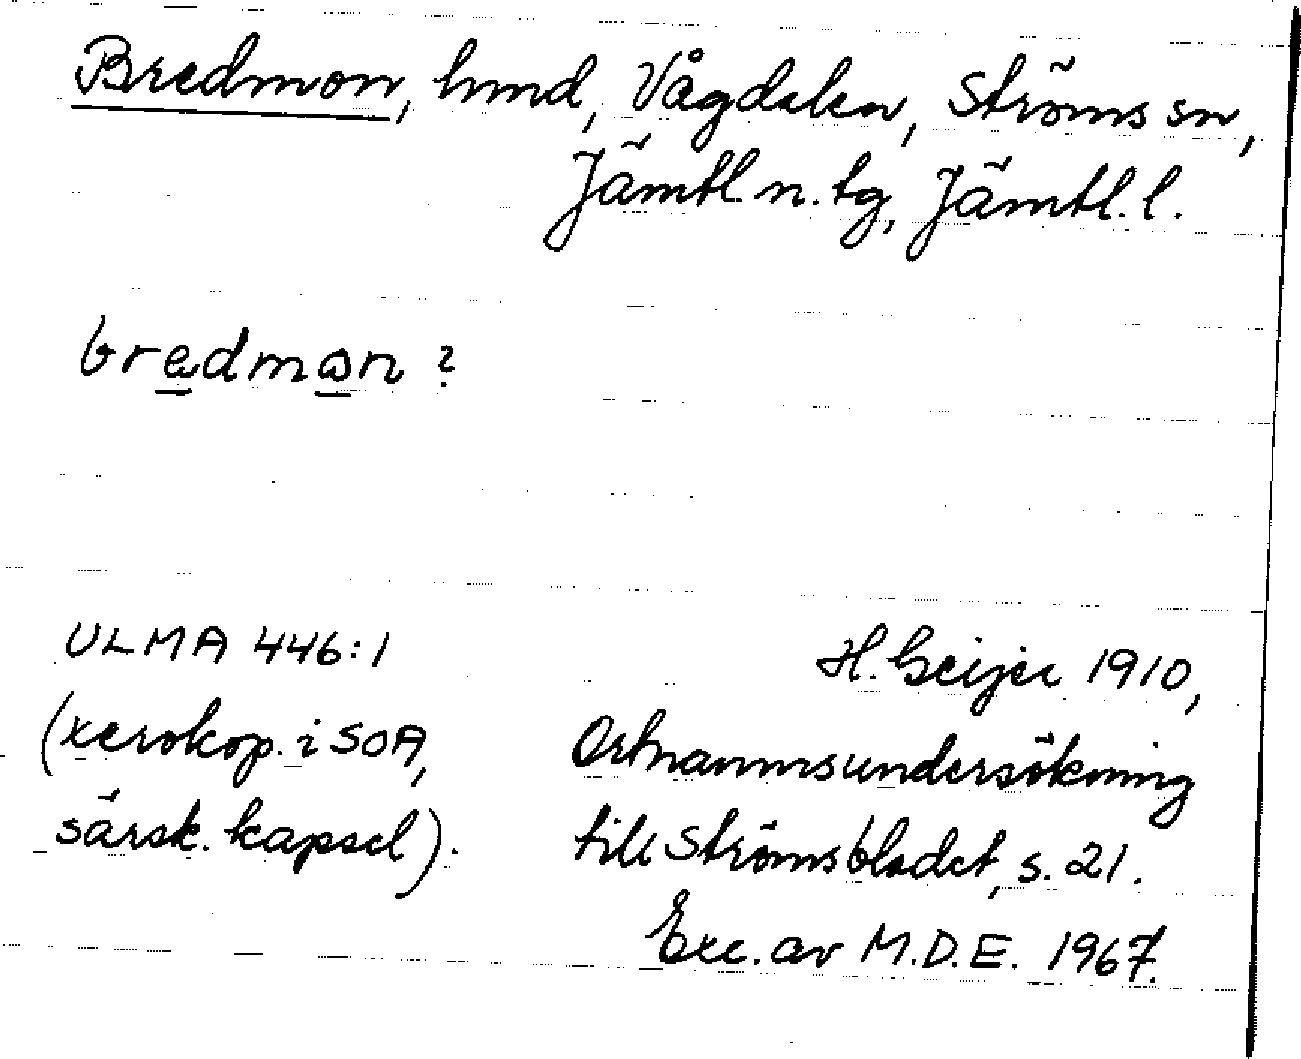 Bredmon, hmd, Vågdalen, Ströms sn,
Jämtl. n. tg, Jämtl. l.
bredmɷn ?
ULMA 446:1
(xerokop. i SOA,
särsk. kapsel).
H. Geijer 1910,
Ortnamnsundersökning
till Strömsbladet, s. 21.
Exc. av M.D.E. 1967.